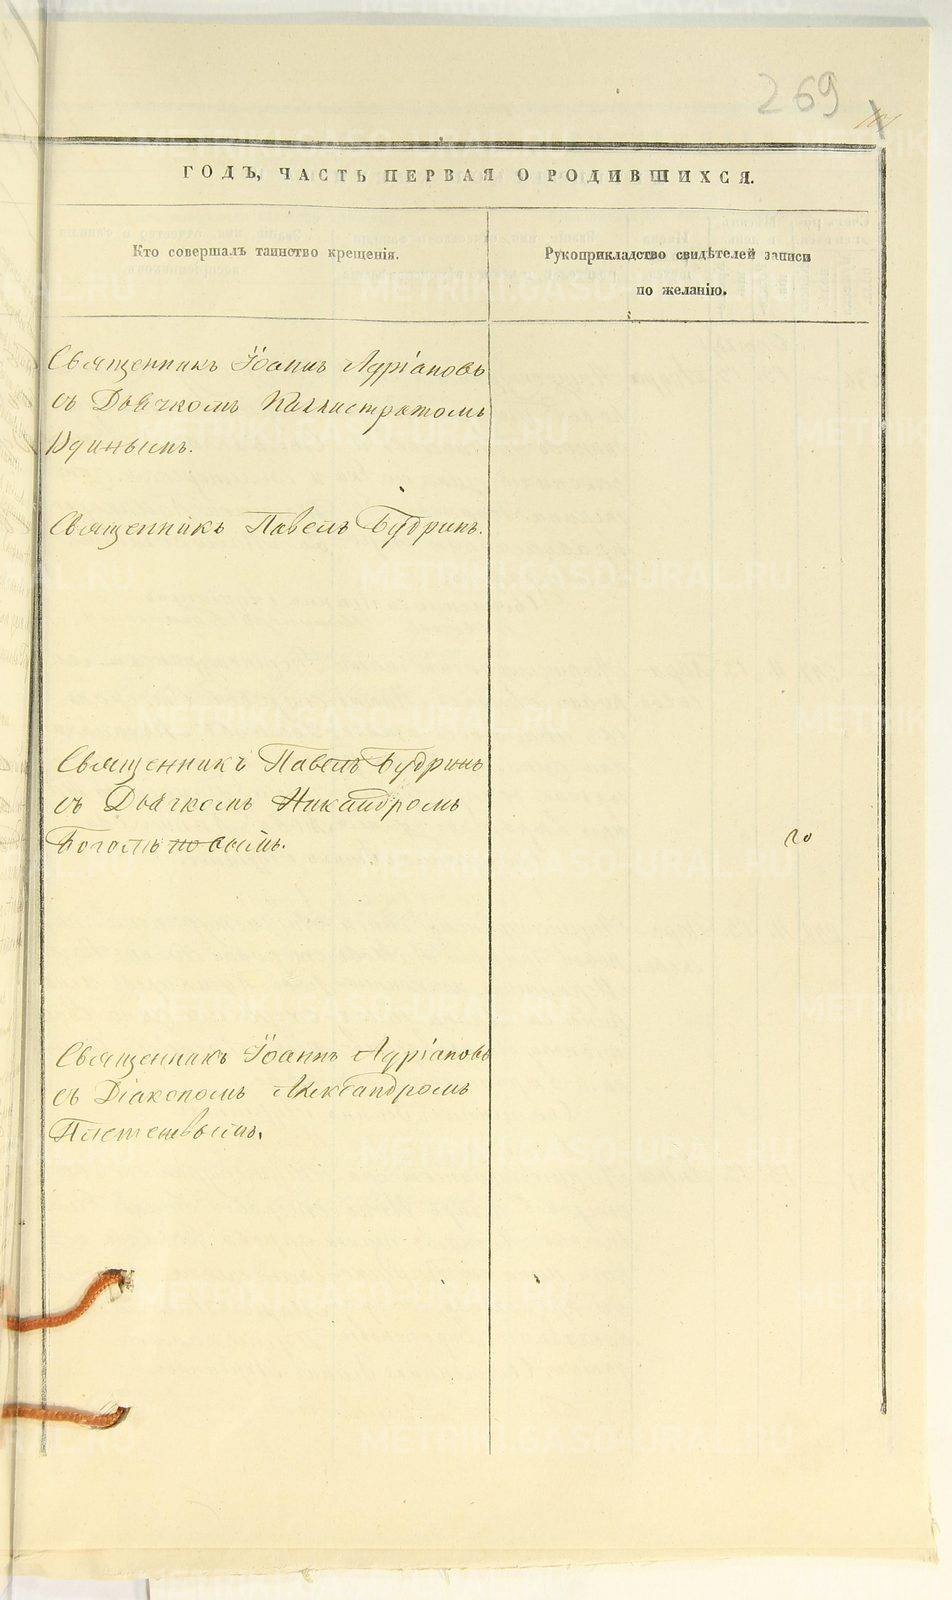 269
ГОДЪ, ЧАСТЬ ПЕРВАЯ О РОДИВШИХСЯ.
Кто совершалъ таинство крещенія.
Рукоприкладство свидѣтелей записи
по желанію.
Священникъ Іоаннъ Адріановъ
съ Дьячкомъ Каллистратомъ
Удинымъ.
Священникъ Павелъ Будринъ.
Священникъ Павелъ Будринъ
съ Дьячкомъ Никандромъ
20
Священникъ Іоаннъ Адріановъ
съ Діакономъ Александромъ
Плетеневымъ.
METRIKI.GASO-URAL.RU